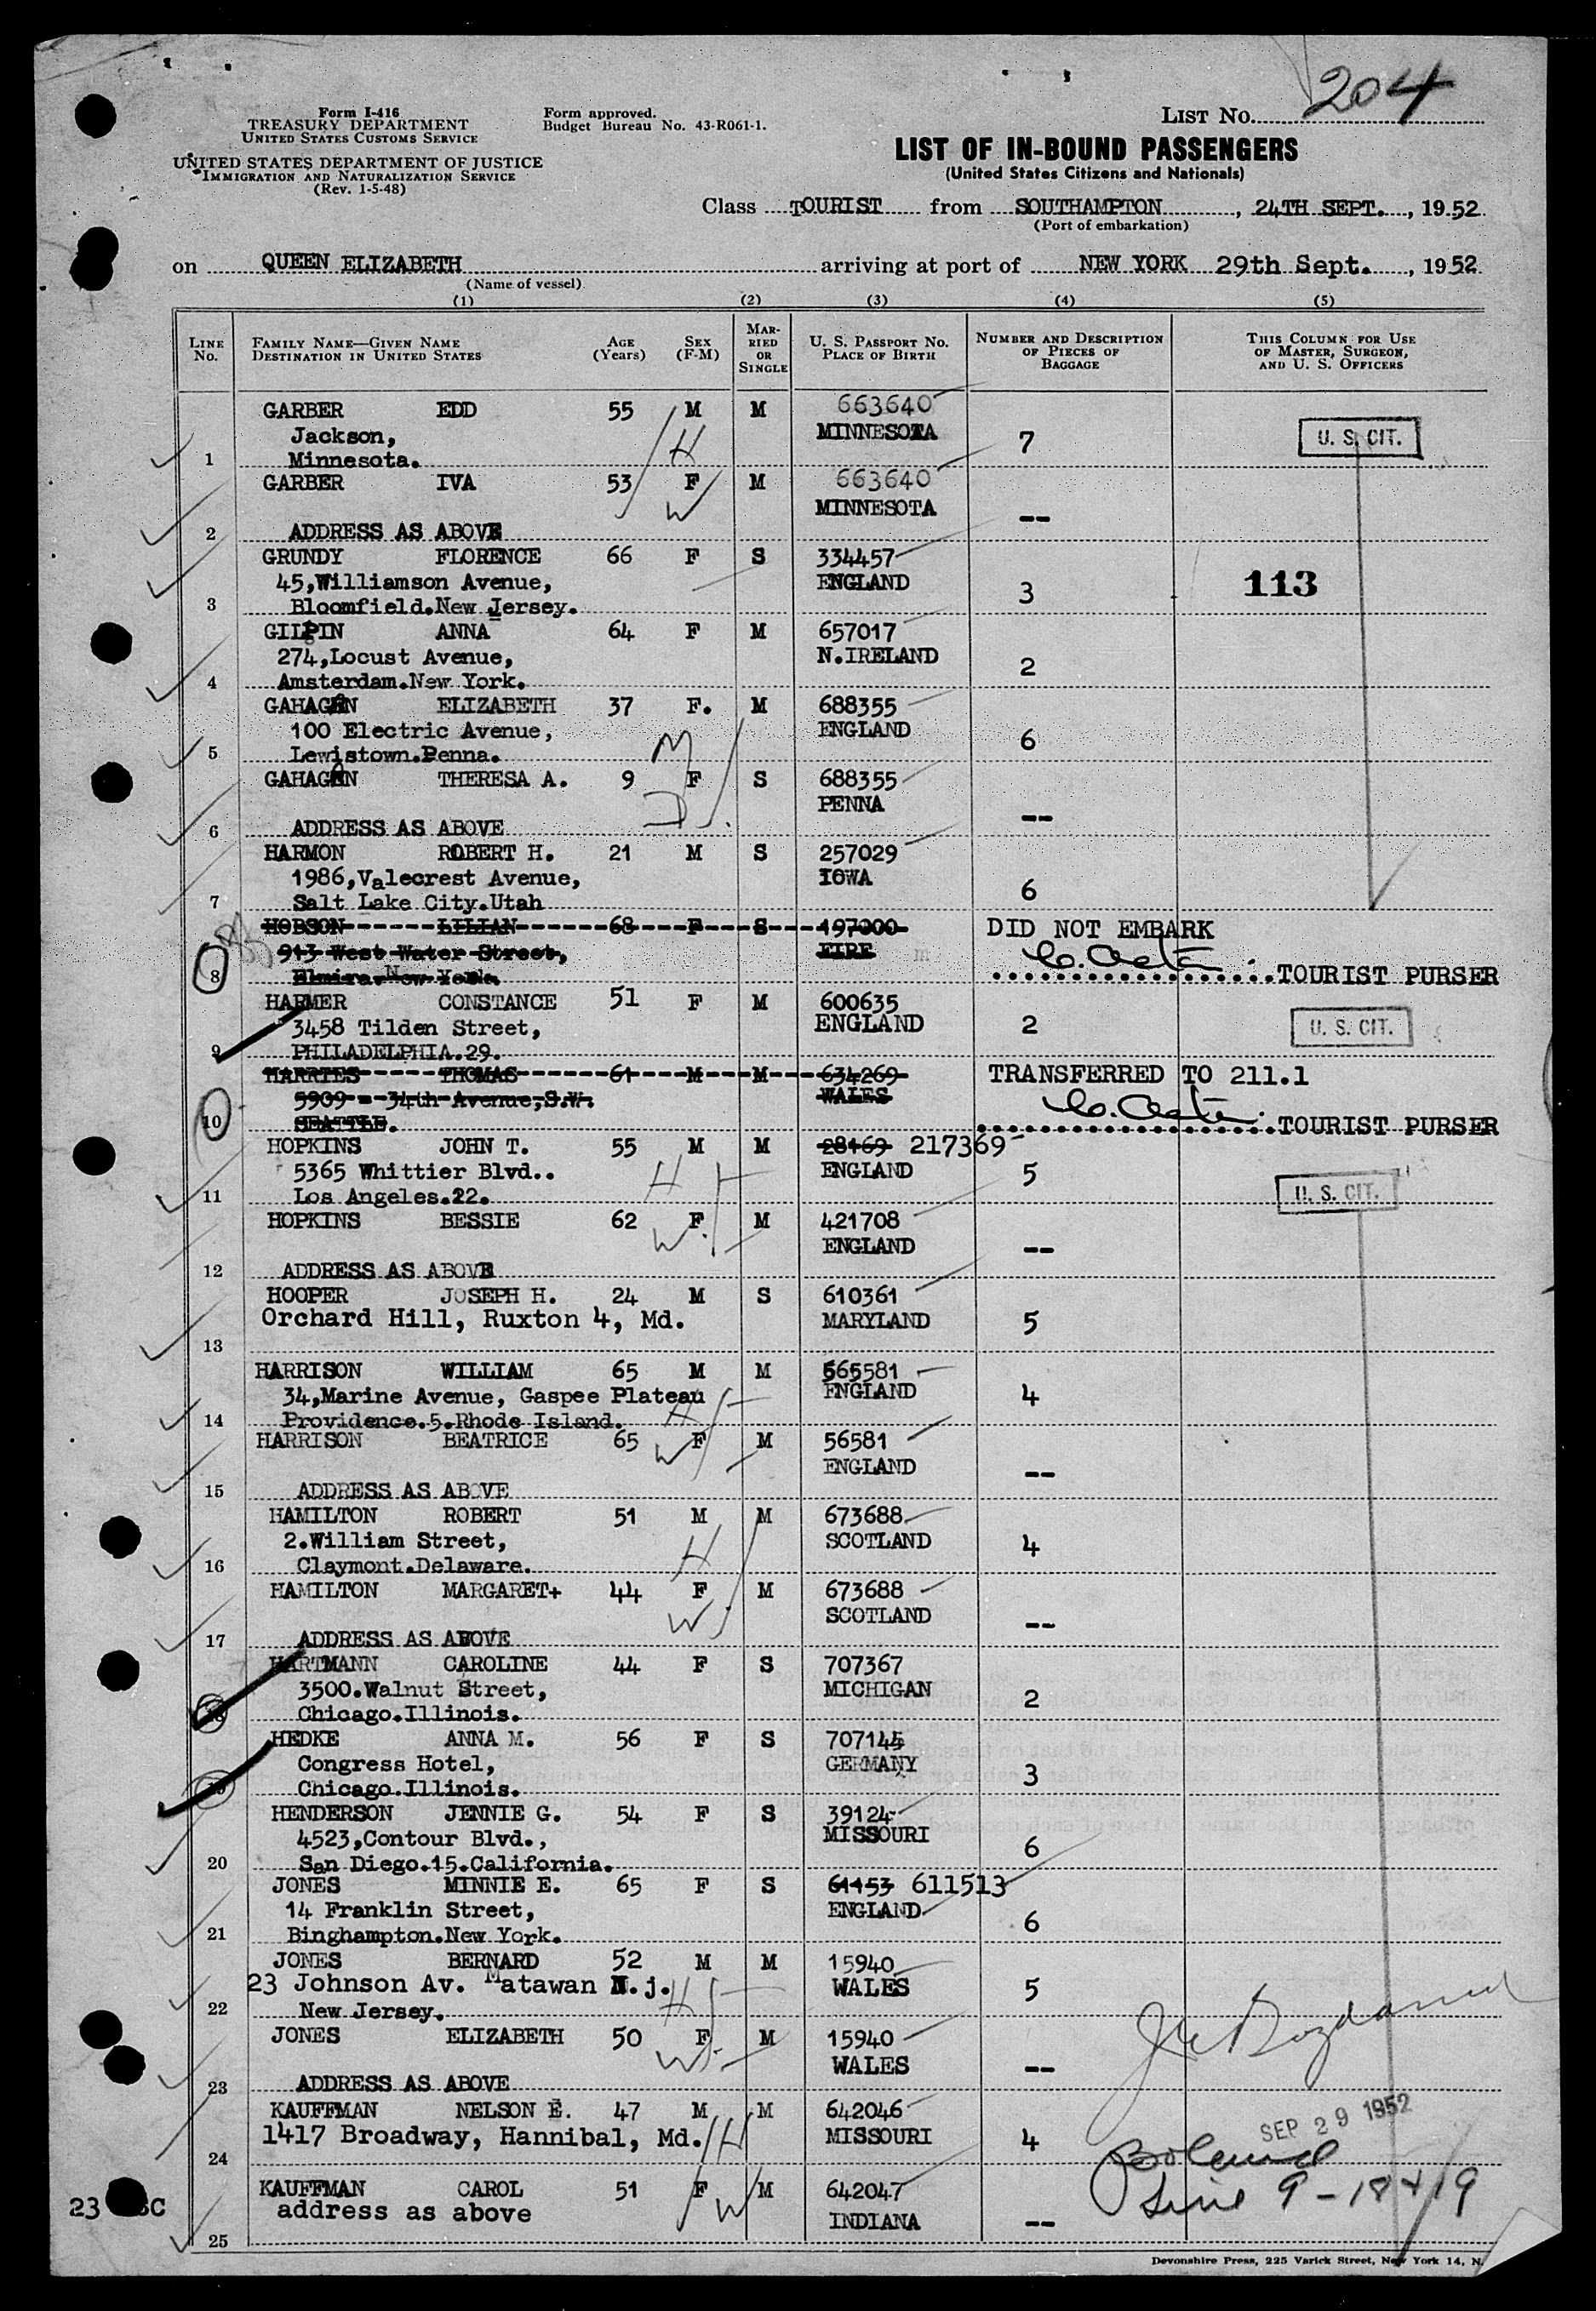 Form I-416
TREASURY DEPARTMENT
UNITED STATES CUSTOMS SERVICE
UNITED STATES DEPARTMENT OF JUSTICE
IMMIGRATION AND NATURALIZATION SERVICE
(Rev. 1-5-48)
Form approved.
Budget Bureau No. 43-R061-1.
LIST NO. 204
LIST OF IN-BOUND PASSENGERS
(United States Citizens and Nationals)
Class TOURIST from SOUTHAMPTON, 24TH SEPT., 1952
(Port of embarkation)
on QUEEN ELIZABETH arriving at port of NEW YORK 29th Sept., 1952
(Name of vessel)
(1) (2) (3) (4) (5)
LINE No.
FAMILY NAME—GIVEN NAME DESTINATION IN UNITED STATES
AGE (Years)
SEX (F-M)
MARRIED OR SINGLE
U. S. PASSPORT NO. PLACE OF BIRTH
NUMBER AND DESCRIPTION OF PIECES OF BAGGAGE
THIS COLUMN FOR USE OF MASTER, SURGEON, AND U. S. OFFICERS
GARBER EDD 55 M M 663640
Jackson, H MINNESOTA 7 U. S. CIT.
1 Minnesota.
GARBER IVA 53 F M 663640
W MINNESOTA --
2 ADDRESS AS ABOVE
GRUNDY FLORENCE 66 F S 334457
45,Williamson Avenue, ENGLAND 3 113
3 Bloomfield.New Jersey.
GILPIN ANNA 64 F M 657017
274,Locust Avenue, N.IRELAND 2
4 Amsterdam.New York.
GAHAGAN ELIZABETH 37 F. M 688355
100 Electric Avenue, ENGLAND 6
5 Lewistown.Penna. M
GAHAGAN THERESA A. 9 F S 688355
D PENNA --
6 ADDRESS AS ABOVE
HARMON ROBERT H. 21 M S 257029
1986,Valecrest Avenue, IOWA 6
7 Salt Lake City.Utah
HOBSON LILIAN 68 F S 197000 DID NOT EMBARK
913 West Water Street, EIRE
8 Elmira.New York. TOURIST PURSER
HARMER CONSTANCE 51 F M 600635
3458 Tilden Street, ENGLAND 2 U. S. CIT.
9 PHILADELPHIA.29.
HARRIES THOMAS 61 M M 634269 TRANSFERRED TO 211.1
5909 - 34th Avenue,S.W. WALES
10 SEATTLE. TOURIST PURSER
HOPKINS JOHN T. 55 M M 28169 217369
5365 Whittier Blvd.. H ENGLAND 5
11 Los Angeles.22. U. S. CIT.
HOPKINS BESSIE 62 F M 421708
W. ENGLAND --
12 ADDRESS AS ABOVE
HOOPER JOSEPH H. 24 M S 610361
Orchard Hill, Ruxton 4, Md. MARYLAND 5
13
HARRISON WILLIAM 65 M M 565581
34,Marine Avenue, Gaspee Plateau ENGLAND 4
14 Providence.5.Rhode Island. H
HARRISON BEATRICE 65 F M 56581
W ENGLAND --
15 ADDRESS AS ABOVE
HAMILTON ROBERT 51 M M 673688
2.William Street, SCOTLAND 4
16 Claymont.Delaware. H
HAMILTON MARGARET+ 44 F M 673688
W SCOTLAND --
17 ADDRESS AS ABOVE
HARTMANN CAROLINE 44 F S 707367
3500.Walnut Street, MICHIGAN 2
18 Chicago.Illinois.
HEDKE ANNA M. 56 F S 707145
Congress Hotel, GERMANY 3
19 Chicago.Illinois.
HENDERSON JENNIE G. 54 F S 39124
4523,Contour Blvd., MISSOURI 6
20 San Diego.15.California.
JONES MINNIE E. 65 F S 61153 611513
14 Franklin Street, ENGLAND 6
21 Binghampton.New York.
JONES BERNARD 52 M M 15940
23 Johnson Av. Matawan N.j. H WALES 5
22 New Jersey.
JONES ELIZABETH 50 F M 15940
W WALES --
23 ADDRESS AS ABOVE
KAUFFMAN NELSON E. 47 M M 642046 SEP 29 1952
1417 Broadway, Hannibal, Md. H MISSOURI 4
24
KAUFFMAN CAROL 51 F M 642047 Line 9 - 18 + 19
address as above W INDIANA --
25
Devonshire Press, 225 Varick Street, New York 14, N.